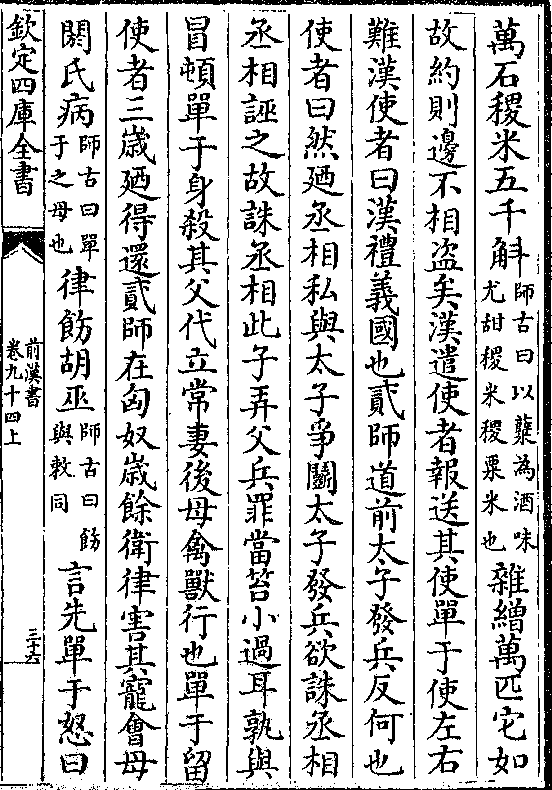 萬石稷米五千斛師古曰以蘗為酒味尤甜稷米稷粟米也雜繒萬匹它如
故約則邊不相盗矣漢遣使者報送其使單于使左右
難漢使者曰漢禮義國也貳師道前太子發兵反何也
使者曰然廼丞相私與太子爭鬭太子發兵欲誅丞相
丞相誣之故誅丞相此子弄父兵罪當笞小過耳孰與
冒頓單于身殺其父代立常妻後母禽獸行也單于留
使者三歳廼得還貳師在匈奴歳餘衛律害其寵會母
閼氏病師古曰單于之母也律飭胡巫師古曰飭與敕同言先單于怒曰
欽定四庫全書
前漢書
卷九十四上
三十六